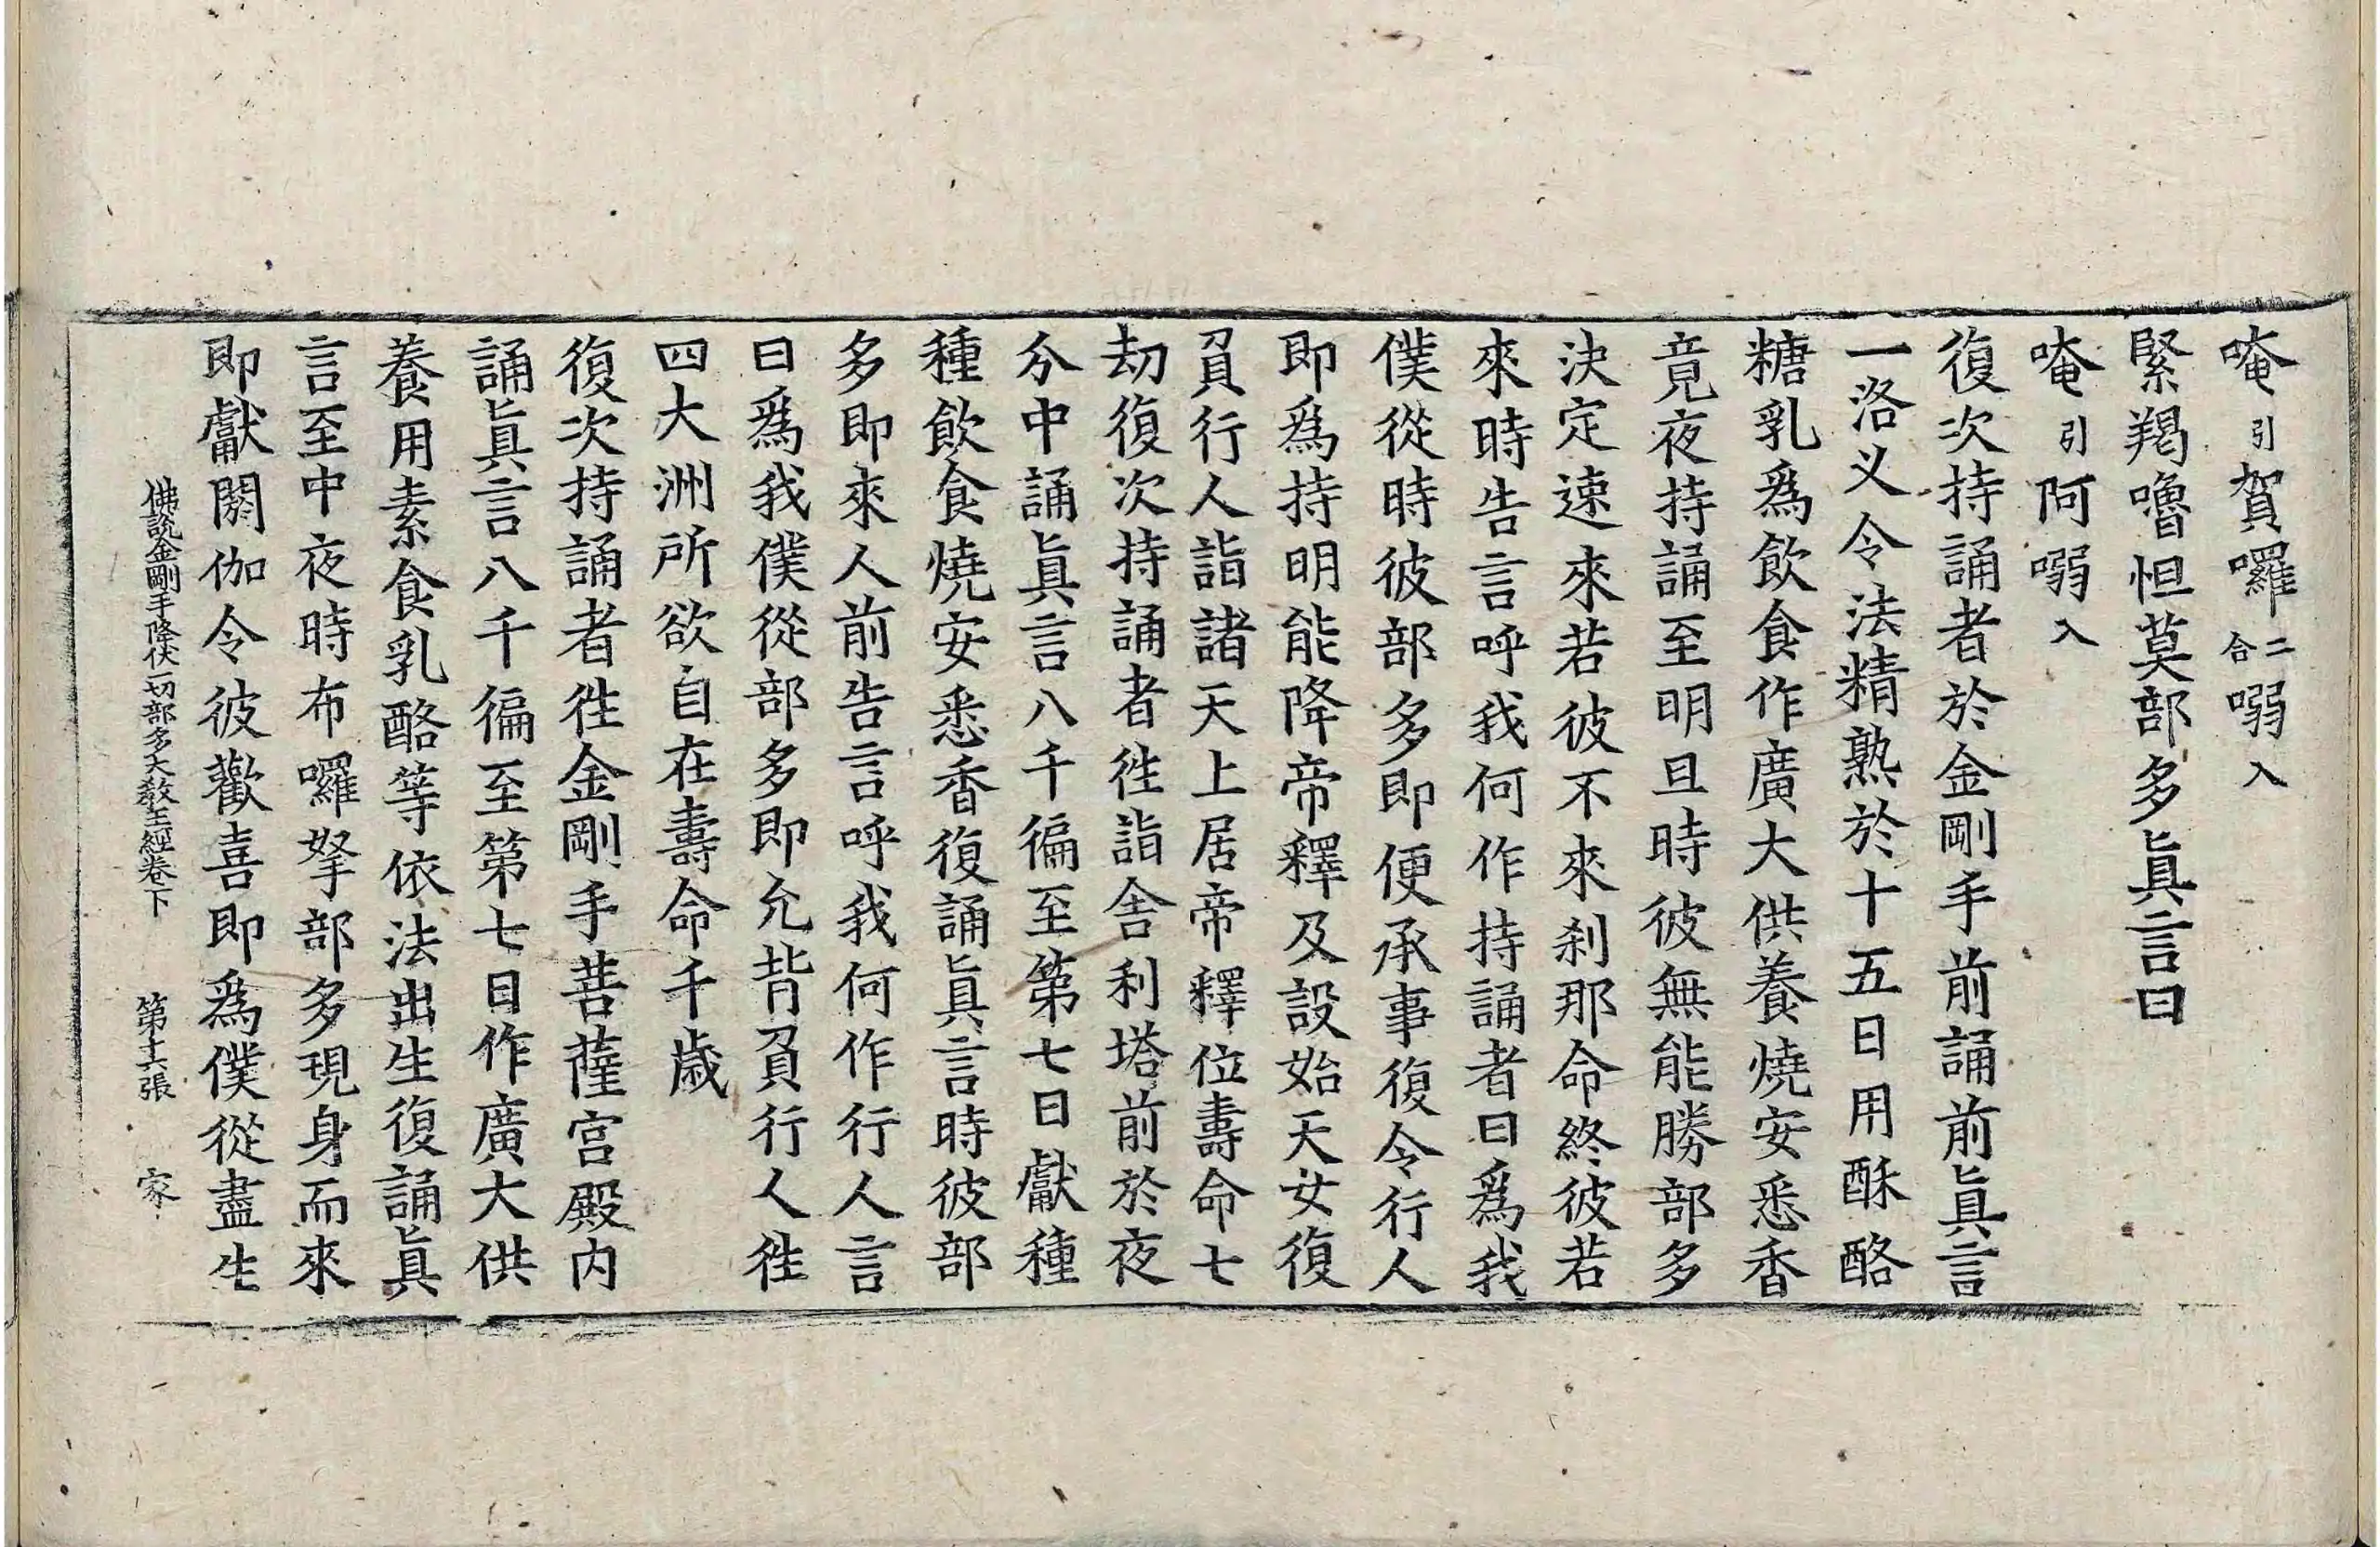 唵引賀囉二合嗍入
緊羯嚕怛莫部多眞言曰
唵引阿嗍入
復次持誦者於金剛手前誦前眞言
一洛义令法精熟於十五日用酥酪
糖乳爲飲食作廣大供養燒安悉香
竟夜持誦至明旦時彼無能勝部多
決定速來若彼不來刹那命終彼若
來時告言呼我何作持誦者曰爲我
僕從時彼部多即便承事復令行人
即爲持明能降帝釋及設始天女復
負行人詣諸天上居帝釋位壽命七
劫復次持誦者徃詣舍利塔前於夜
分中誦眞言八千徧至第七日獻種
種飲食燒安悉香復誦眞言時彼部
多即來人前告言呼我何作行人言
曰爲我僕從部多即允背負行人徃
四大洲所欲自在壽命千歲
復次持誦者徃金剛手菩薩宫殿内
誦眞言八千徧至第七日作廣大供
養用素食乳酪等依法出生復誦眞
言至中夜時布囉拏部多現身而來
即獻閼伽令彼歡喜即爲僕從盡生
佛說金剛手降伏一切部多大敎王經卷下 第十六張 家